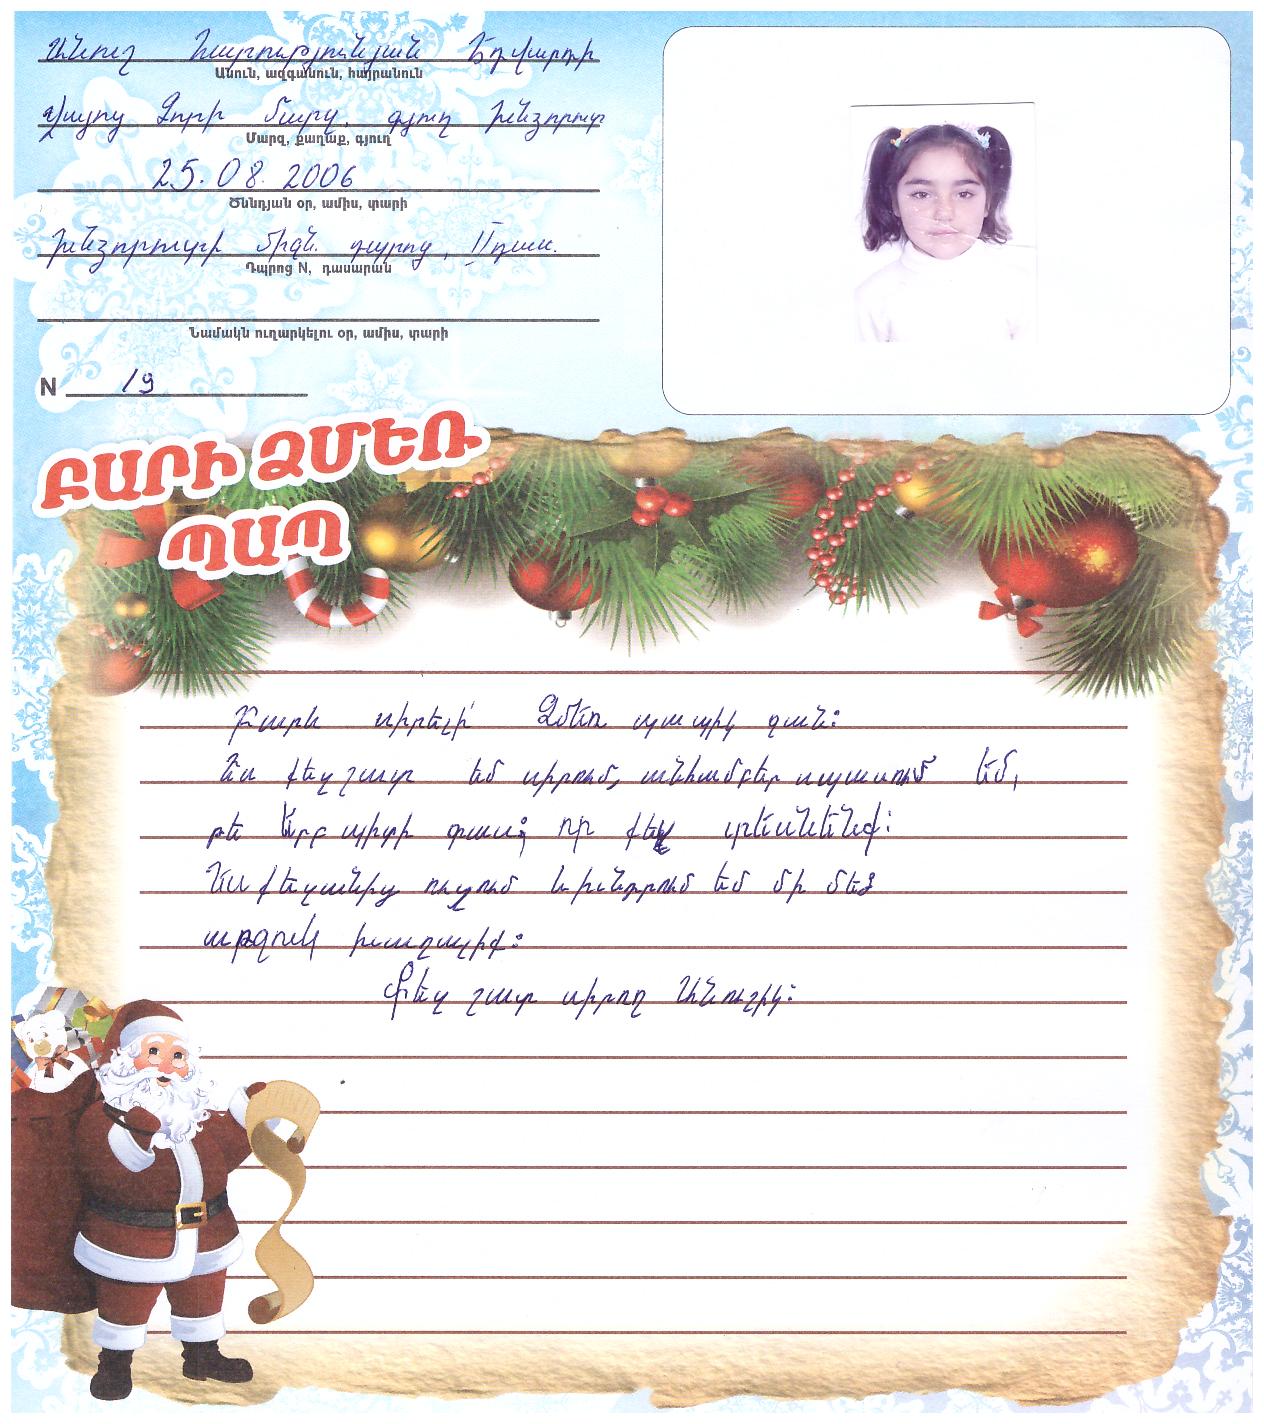 Անուշ Հարությունյան Էդվարդի
Անուն, ազգանուն, հայրանուն
Վայոց Ձորի մարզ, գյուղ Խնձորուտ
Մարզ, քաղաք, գյուղ
25.08.2006
Ծննդյան օր, ամիս, տարի
Խնձորուտի միջն. դպրոց, II դաս.
Դպրոց N, դասարան
Նամակն ուղարկելու օր, ամիս, տարի
N 19
ԲԱՐԻ ՁՄԵՌ
ՊԱՊ
Բարև սիրելի՛ Ձմեռ պապիկ ջան։
Ես քեզ շատ եմ սիրում, անհամբեր սպասում եմ,
թե երբ պիտի գաս, որ քեզ տեսնենք։
Ես քեզանից ուզում և խնդրում եմ մի մեծ
արջուկ խաղալիք։
Քեզ շատ սիրող Անուշիկ։